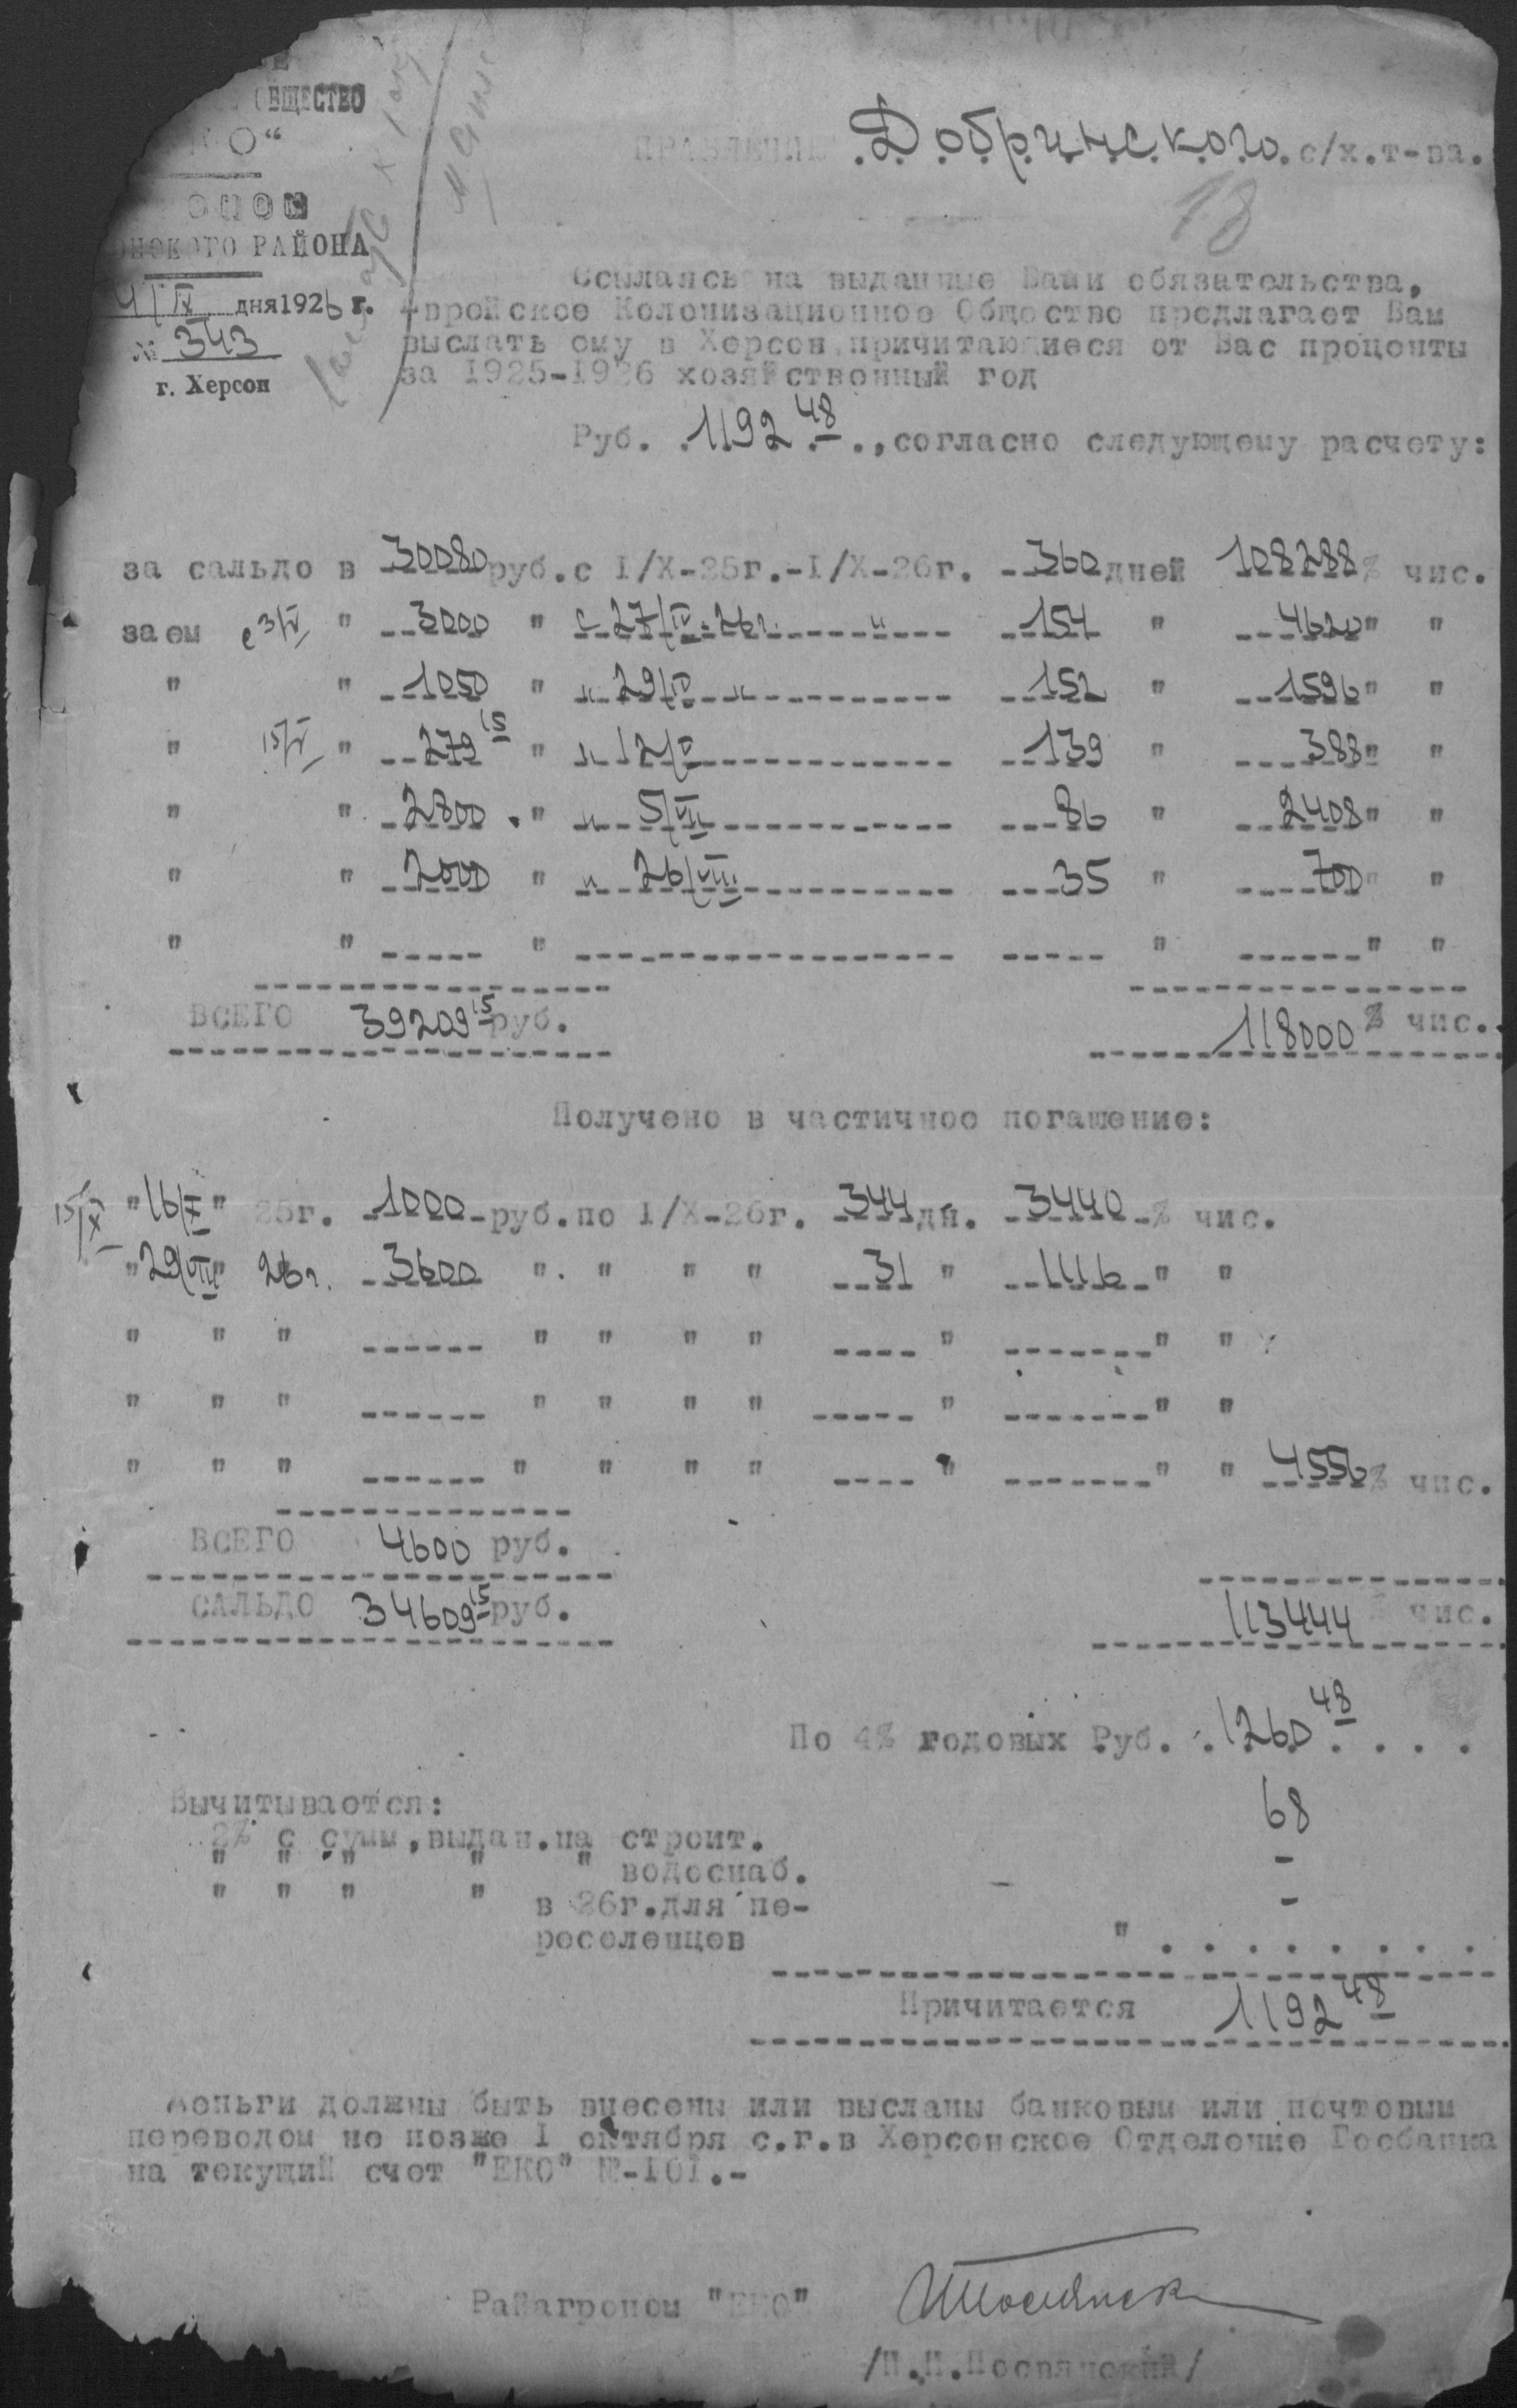 ОБЩЕСТВО
КО“
ОПОК
НСКОГО РАЙОНА
4/IX дня 1926 г.
№ 343
г. Херсон
ПРАВЛЕНИЕ Добринского с/х.т-ва.
18
Ссылаясь на выданные Вами обязательства,
Еврейское Колонизационное Общество предлагает Вам
выслать ему в Херсон причитающиеся от Вас проценты
за 1925-1926 хозяйственный год
Руб. 1192 48., согласно следующему расчету:
за сальдо в 30080 руб. с I/X-25г.-I/X-26г. 360 дней 108288 % чис.
заем с 3/V " 3000 " с 27/IV-26г. " 154 " 4620 " "
" " 1050 " " 29/IV " 152 " 1596 " "
" 15/V " 279 15 " " 12/V 139 " 388 " "
" " 2800 " " 5/VII 86 " 2408 " "
" " 2000 " " 26/VIII 35 " 700 " "
" " " " " "
ВСЕГО 39209 15 руб. 118000 % чис.
Получено в частичное погашение:
15/X "16/X" 25г. 1000 руб. по I/X-26г. 344 дн. 3440 % чис.
"29/VIII" 26г. 3600 " " " " 31 " 1116 " "
" " " " " " " " " "
" " " " " " " " " "
" " " " " " " " " " 4556 % чис.
ВСЕГО 4600 руб.
САЛЬДО 34609 15 руб. 113444 % чис.
По 4% годовых Руб. 1260 48
Вычитывается:
2% с сумм, выдан. на строит. 68
" " " " " водоснаб. -
" " " " в 26г. для пе- -
реселенцев "
Причитается 1192 48
Деньги должны быть внесены или высланы банковым или почтовым
переводом не позже I октября с.г. в Херсонское Отделение Госбанка
на текущий счет "ЕКО" №-101.-
Райагроном "ЕКО"
/П.П.Посвянский/